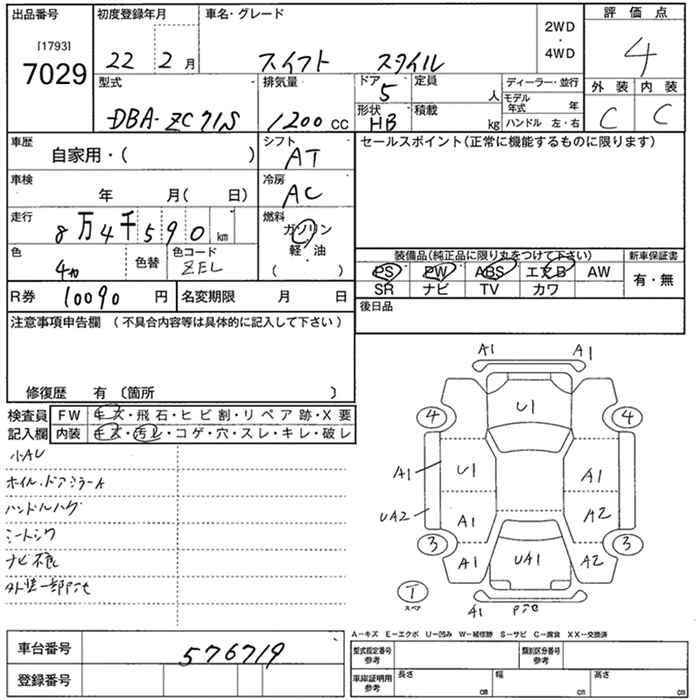 出品番号 [1793] 7029
初度登録年月 22 2月
車名・グレード スイフト スタイル
2WD・4WD
評価点 4
外装 C 内装 C
型式 DBA-ZC71S
排気量 1200cc
ドア 5 定員 人
形状 HB 積載 kg
ディーラー・並行
モデル年式 年
ハンドル 左・右
車歴 自家用・( )
シフト AT
車検 年 月( 日)
冷房 AC
走行 8万4千590km
燃料 ガソリン 軽・油 ( )
色 色替 色コード ZEL
R券 10090円 名変期限 月 日
セールスポイント(正常に機能するものに限ります)
装備品(純正品に限り丸をつけて下さい) 新車保証書
PS PW ABS エアB AW 有・無
SR ナビ TV カワ
後日品
注意事項申告欄 (不具合内容等は具体的に記入して下さい)
修復歴 有 〔箇所 〕
検査員記入欄
FW キズ・飛石・ヒビ割・リペア跡・X要
内装 キズ・汚レ・コゲ・穴・スレ・キレ・破レ
小AU
ホイル.ドアミラーA
ハンドルハゲ
シートシワ
ナビ不良
A1 A1
U1
4 4
A1 U1 A1
UA2 A1 A2
3 3
A1 UA1 A2
T スペア
A1
A－キズ E－エクボ U－凹み W－補修跡 S－サビ C－腐食 XX－交換済
車台番号 576719
登録番号
型式指定番号 参考 類別区分番号 参考
車庫証明用 参考 長さ cm 幅 cm 高さ cm